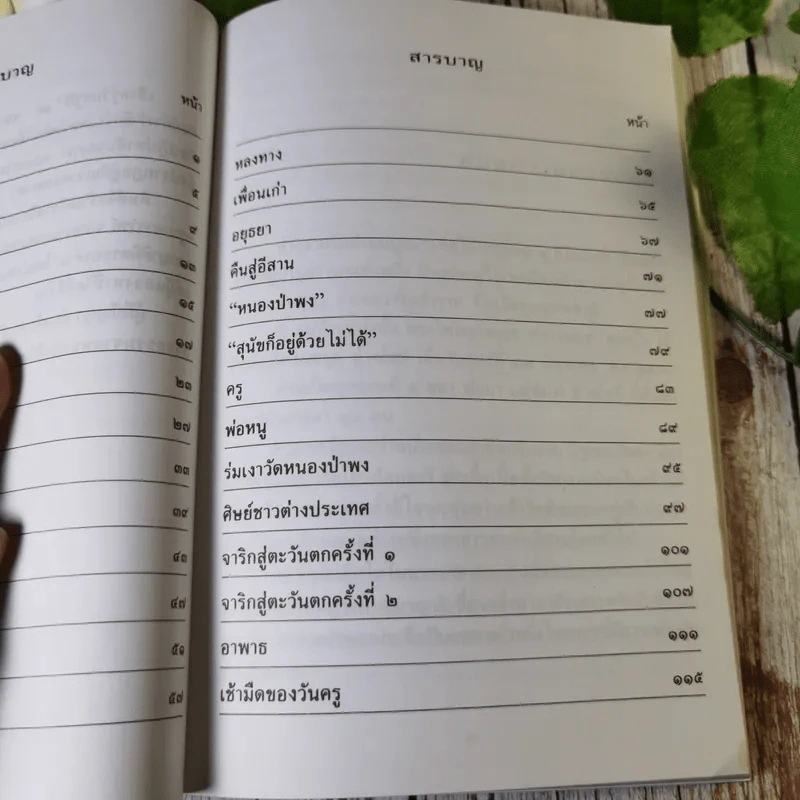 บาญ
หน้า
๑
๕
๙
๑๓
๑๕
๑๗
๒๓
๒๗
๓๓
๓๙
๔๓
๔๗
๕๑
๕๗
สารบาญ
หน้า
หลงทาง ๖๑
เพื่อนเก่า ๖๕
อยุธยา ๖๗
คืนสู่อีสาน ๗๑
“หนองป่าพง” ๗๗
“สุนัขก็อยู่ด้วยไม่ได้” ๗๙
ครู ๘๓
พ่อหนู ๘๙
ร่มเงาวัดหนองป่าพง ๙๕
ศิษย์ชาวต่างประเทศ ๙๗
จาริกสู่ตะวันตกครั้งที่ ๑ ๑๐๑
จาริกสู่ตะวันตกครั้งที่ ๒ ๑๐๗
อาพาธ ๑๑๑
เช้ามืดของวันครู ๑๑๕